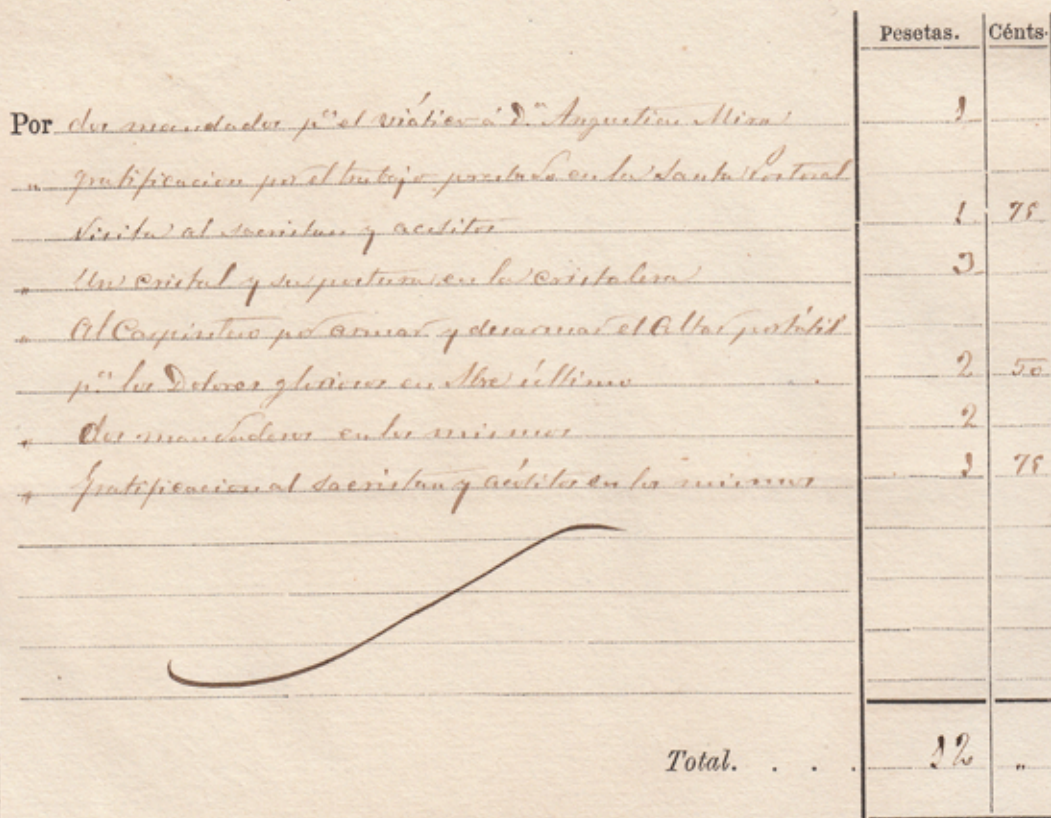 Pesetas. Cénts.
Por dos mandados pª el viático á Dª Angustias Mira 1
" gratificacion por el trabajo prestado en la Santa Pastoral
Visita al sacristan y acolitos 1 75
" Un cristal y su postura en la cristalera 3
" Al Carpintero por armar y desarmar el Altar portátil
pª los Dolores gloriosos en último 2 50
" dos mandaderos en los mismos 2
" Gratificacion al sacristan y acólitos en los mismos 1 75
Total. . . . 12 "